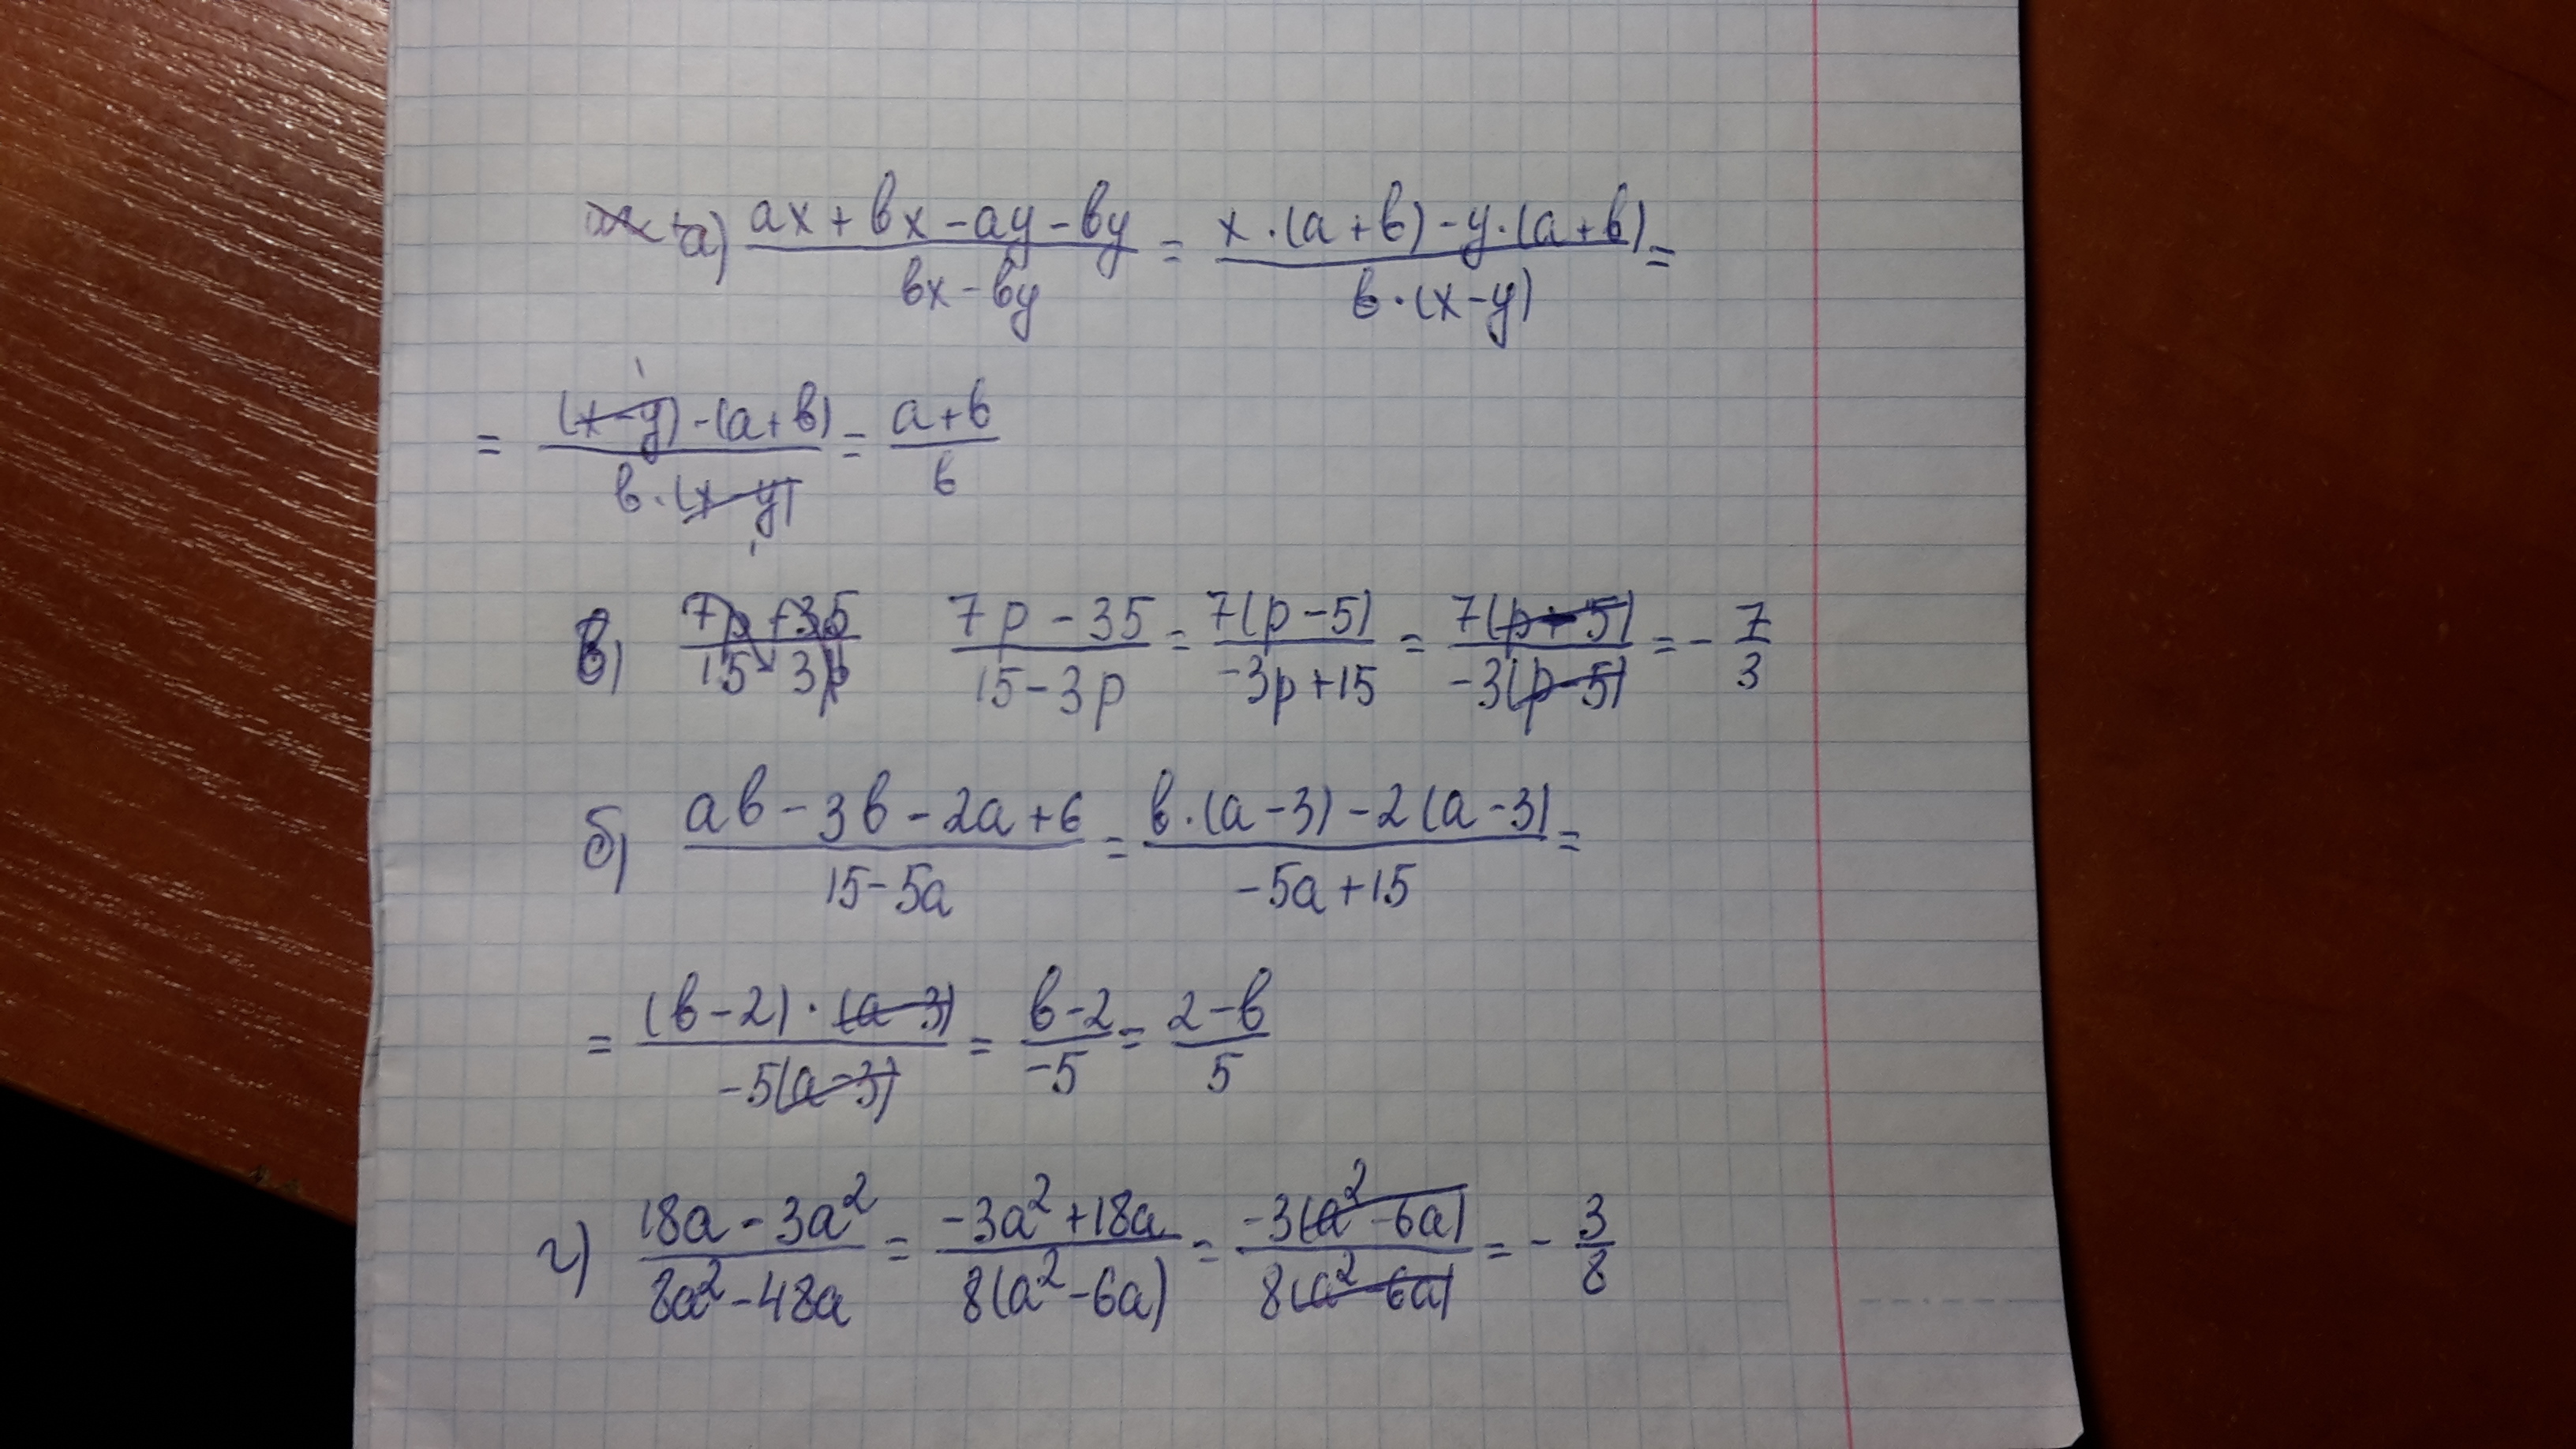 а) (ax + bx - ay - by)/(bx - by) = (x · (a + b) - y · (a + b))/(b · (x - y)) =
= ((x - y) · (a + b))/(b · (x - y)) = (a + b)/b
в) (7p - 35)/(15 - 3p) = 7(p - 5)/(-3p + 15) = 7(p - 5)/(-3(p - 5)) = - 7/3
б) (ab - 3b - 2a + 6)/(15 - 5a) = (b · (a - 3) - 2(a - 3))/(-5a + 15) =
= ((b - 2) · (a - 3))/(-5(a - 3)) = (b - 2)/(-5) = (2 - b)/5
г) (18a - 3a²)/(8a² - 48a) = (-3a² + 18a)/(8(a² - 6a)) = -3(a² - 6a)/(8(a² - 6a)) = - 3/8